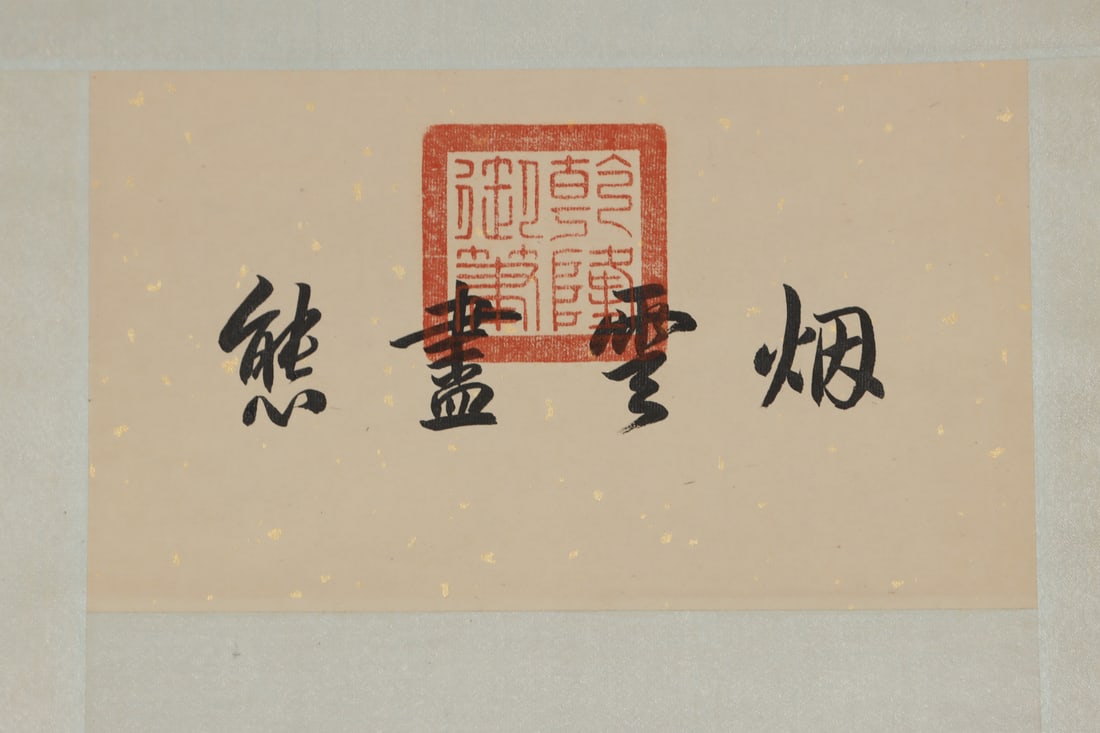 烟雲盡態
乾隆
御筆